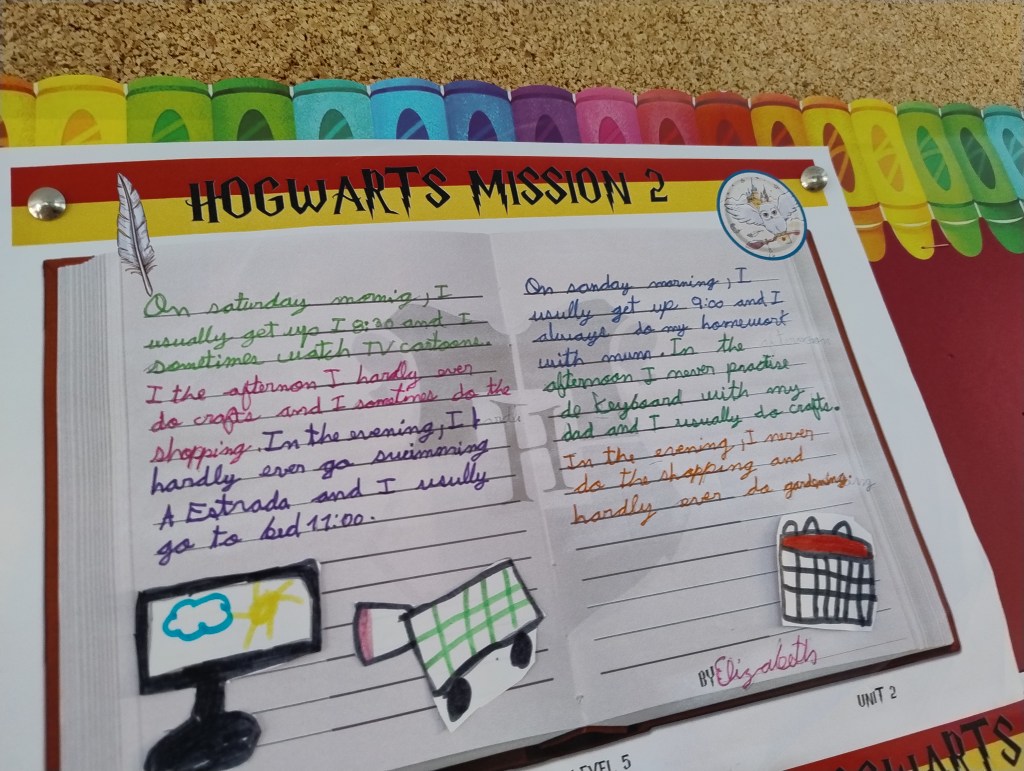 HOGWARTS MISSION 2
On saturday mornig, I
usually get ups I 8:30 and I
sometimes watch TV cartoons.
I the afternon I hardly ever
do crafts and I sometimes do the
shopping. In the evening, I
hardly ever go swimming
A Estrada and I usully
go to bed 11:00.
On sanday morning, I
usully get up 9:00 and I
always do my homework
with mum. In the
afternoon I never practise
de keyboard with my
dad and I usually do crafts.
In the evening, I never
do the shopping and
hardly ever do gardening.
H
BY Elizabeth
UNIT 2
LEVEL 5
HOGWARTS